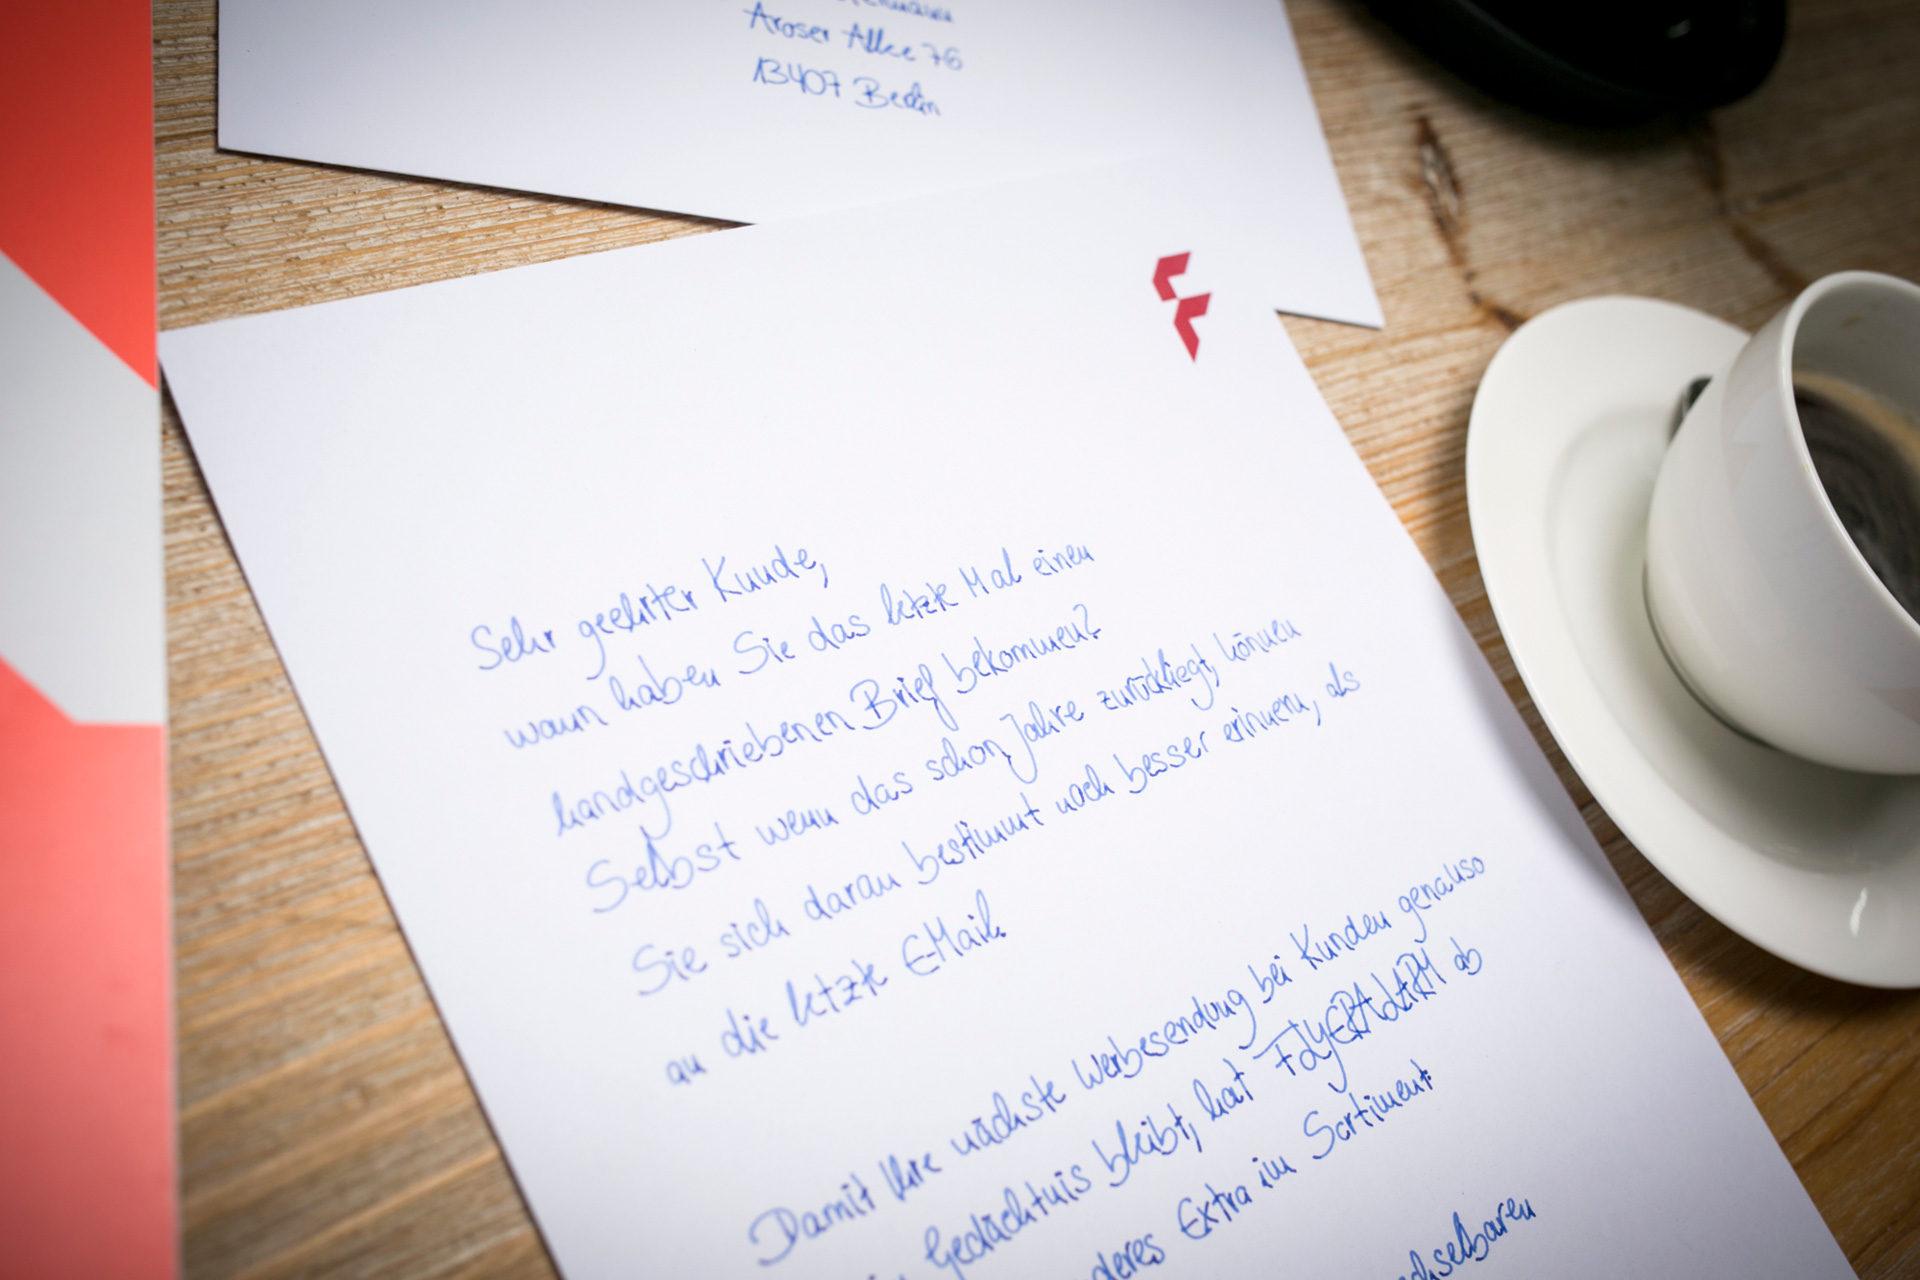 Aroser Allee 76
13407 Berlin
Sehr geehrter Kunde,
wann haben Sie das letzte Mal einen
handgeschriebenen Brief bekommen?
Selbst wenn das schon Jahre zurückliegt, können
Sie sich daran bestimmt noch besser erinnern, als
an die letzte E-Mail.
Damit Ihre nächste Werbesendung bei Kunden genauso
Gedächtnis bleibt, hat FLYERALARM ab
deres Extra im Sortiment
chselbaren